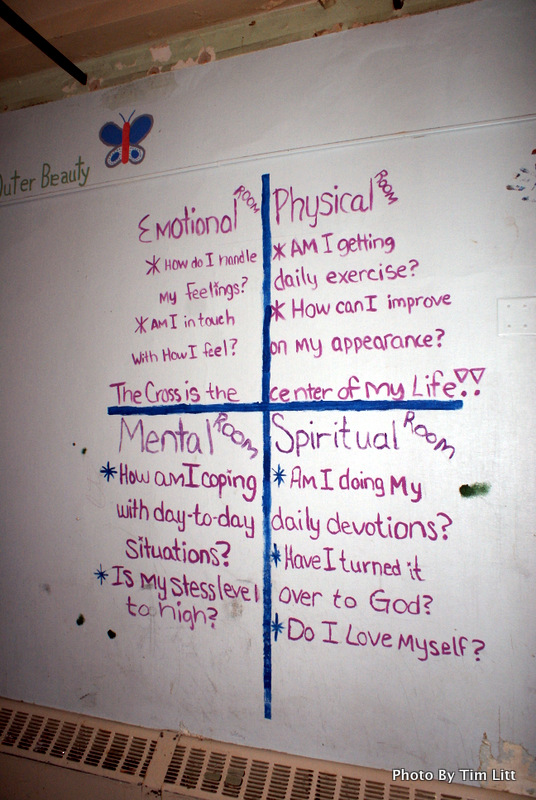 Outer Beauty
Emotional ROOM
* How do I handle
my feelings?
* AM I in touch
with How I feel?
Physical ROOM
* AM I getting
daily exercise?
* How can I improve
on my appearance?
The Cross is the center of My Life!!
Mental ROOM
* How am I coping
with day-to-day
situations?
* Is my stess level
to high?
Spiritual ROOM
* Am I doing My
daily devotions?
* Have I turned it
over to God?
* Do I Love Myself?
Photo By Tim Litt